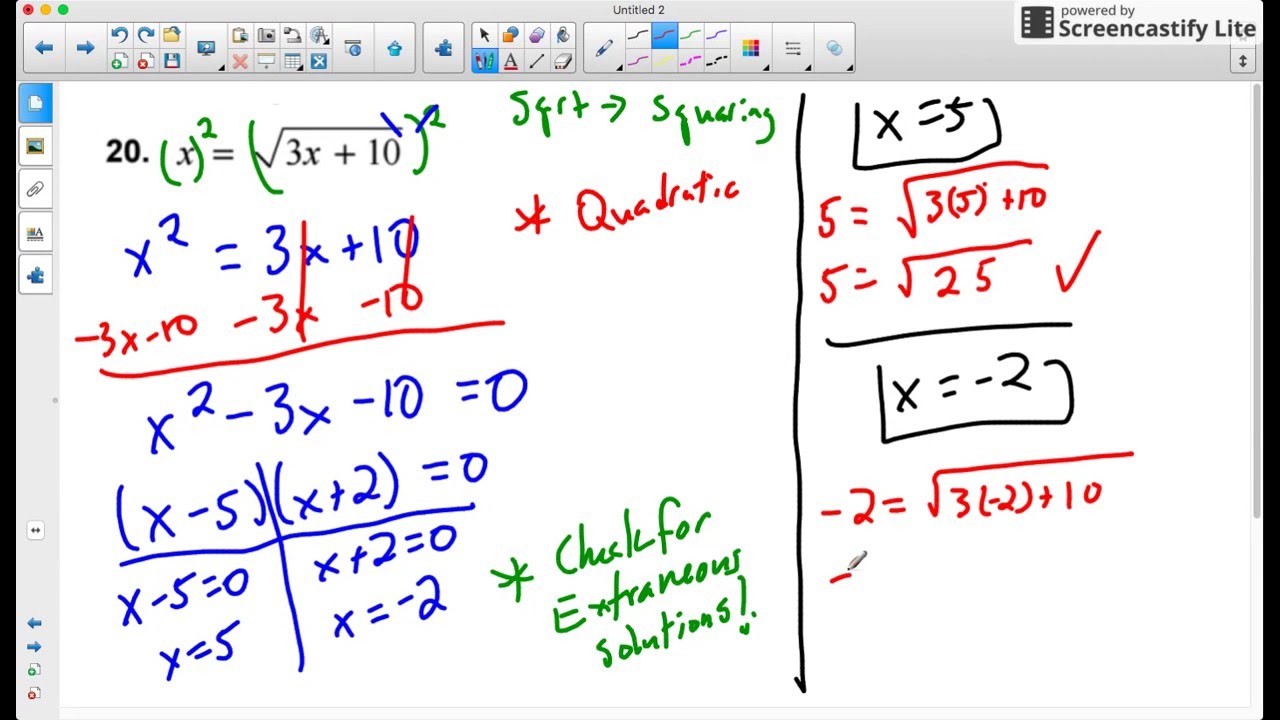 Untitled 2
powered by
Screencastify Lite
20. (x)² = (√3x + 10)²
x² = 3x+10
-3x-10 -3x -10
x² - 3x - 10 = 0
(x-5)(x+2) = 0
x-5=0
x=5
x+2=0
x=-2
Sqrt → Squaring
* Quadratic
* Check for
Extraneous
solutions!
x=5
5 = √3(5)+10
5 = √25 ✓
x = -2
-2 = √3(-2)+10
-